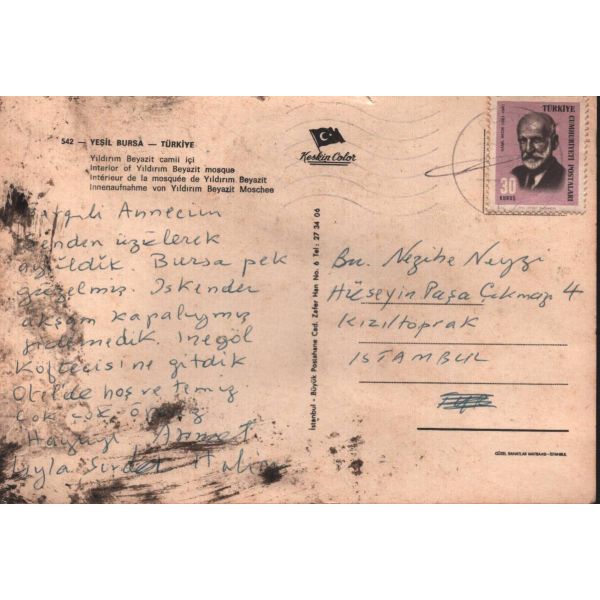 542 — YEŞİL BURSA — TÜRKİYE
Yıldırım Beyazit camii içi
Interior of Yıldırım Beyazit mosque
Intérieur de la mosquée de Yıldırım Beyazit
Innenaufnahme von Yıldırım Beyazit Moschee
Saygılı Annecim
Senden üzülerek
ayrıldık. Bursa pek
güzelmiş. İskender
akşam kapalıymış
gidemedik. İnegöl
Köftecisine gitdik
Otelde hoş ve temiz
Çok çok öperiz
Ahmet
Leyla
Keskin Color
İstanbul - Büyük Postahane Cad. Zafer Han No. 6 Tel: 27 34 06
TÜRKİYE
CUMHURİYETİ POSTALARI
30
KURUŞ
Bn. Nezihe Neyzi
Hüseyin Paşa Çıkmazı 4
Kızıltoprak
İSTANBUL
GÜZEL SANATLAR MATBAASI-İSTANBUL